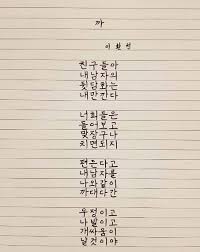 까
이환천
친구들아
내남자의
뒷담화는
내만깐다
너희들은
들어보고
맞장구나
치면되지
편은다고
내남자를
나와같이
까대다간
우정이고
나발이고
개싸움이
날것이야